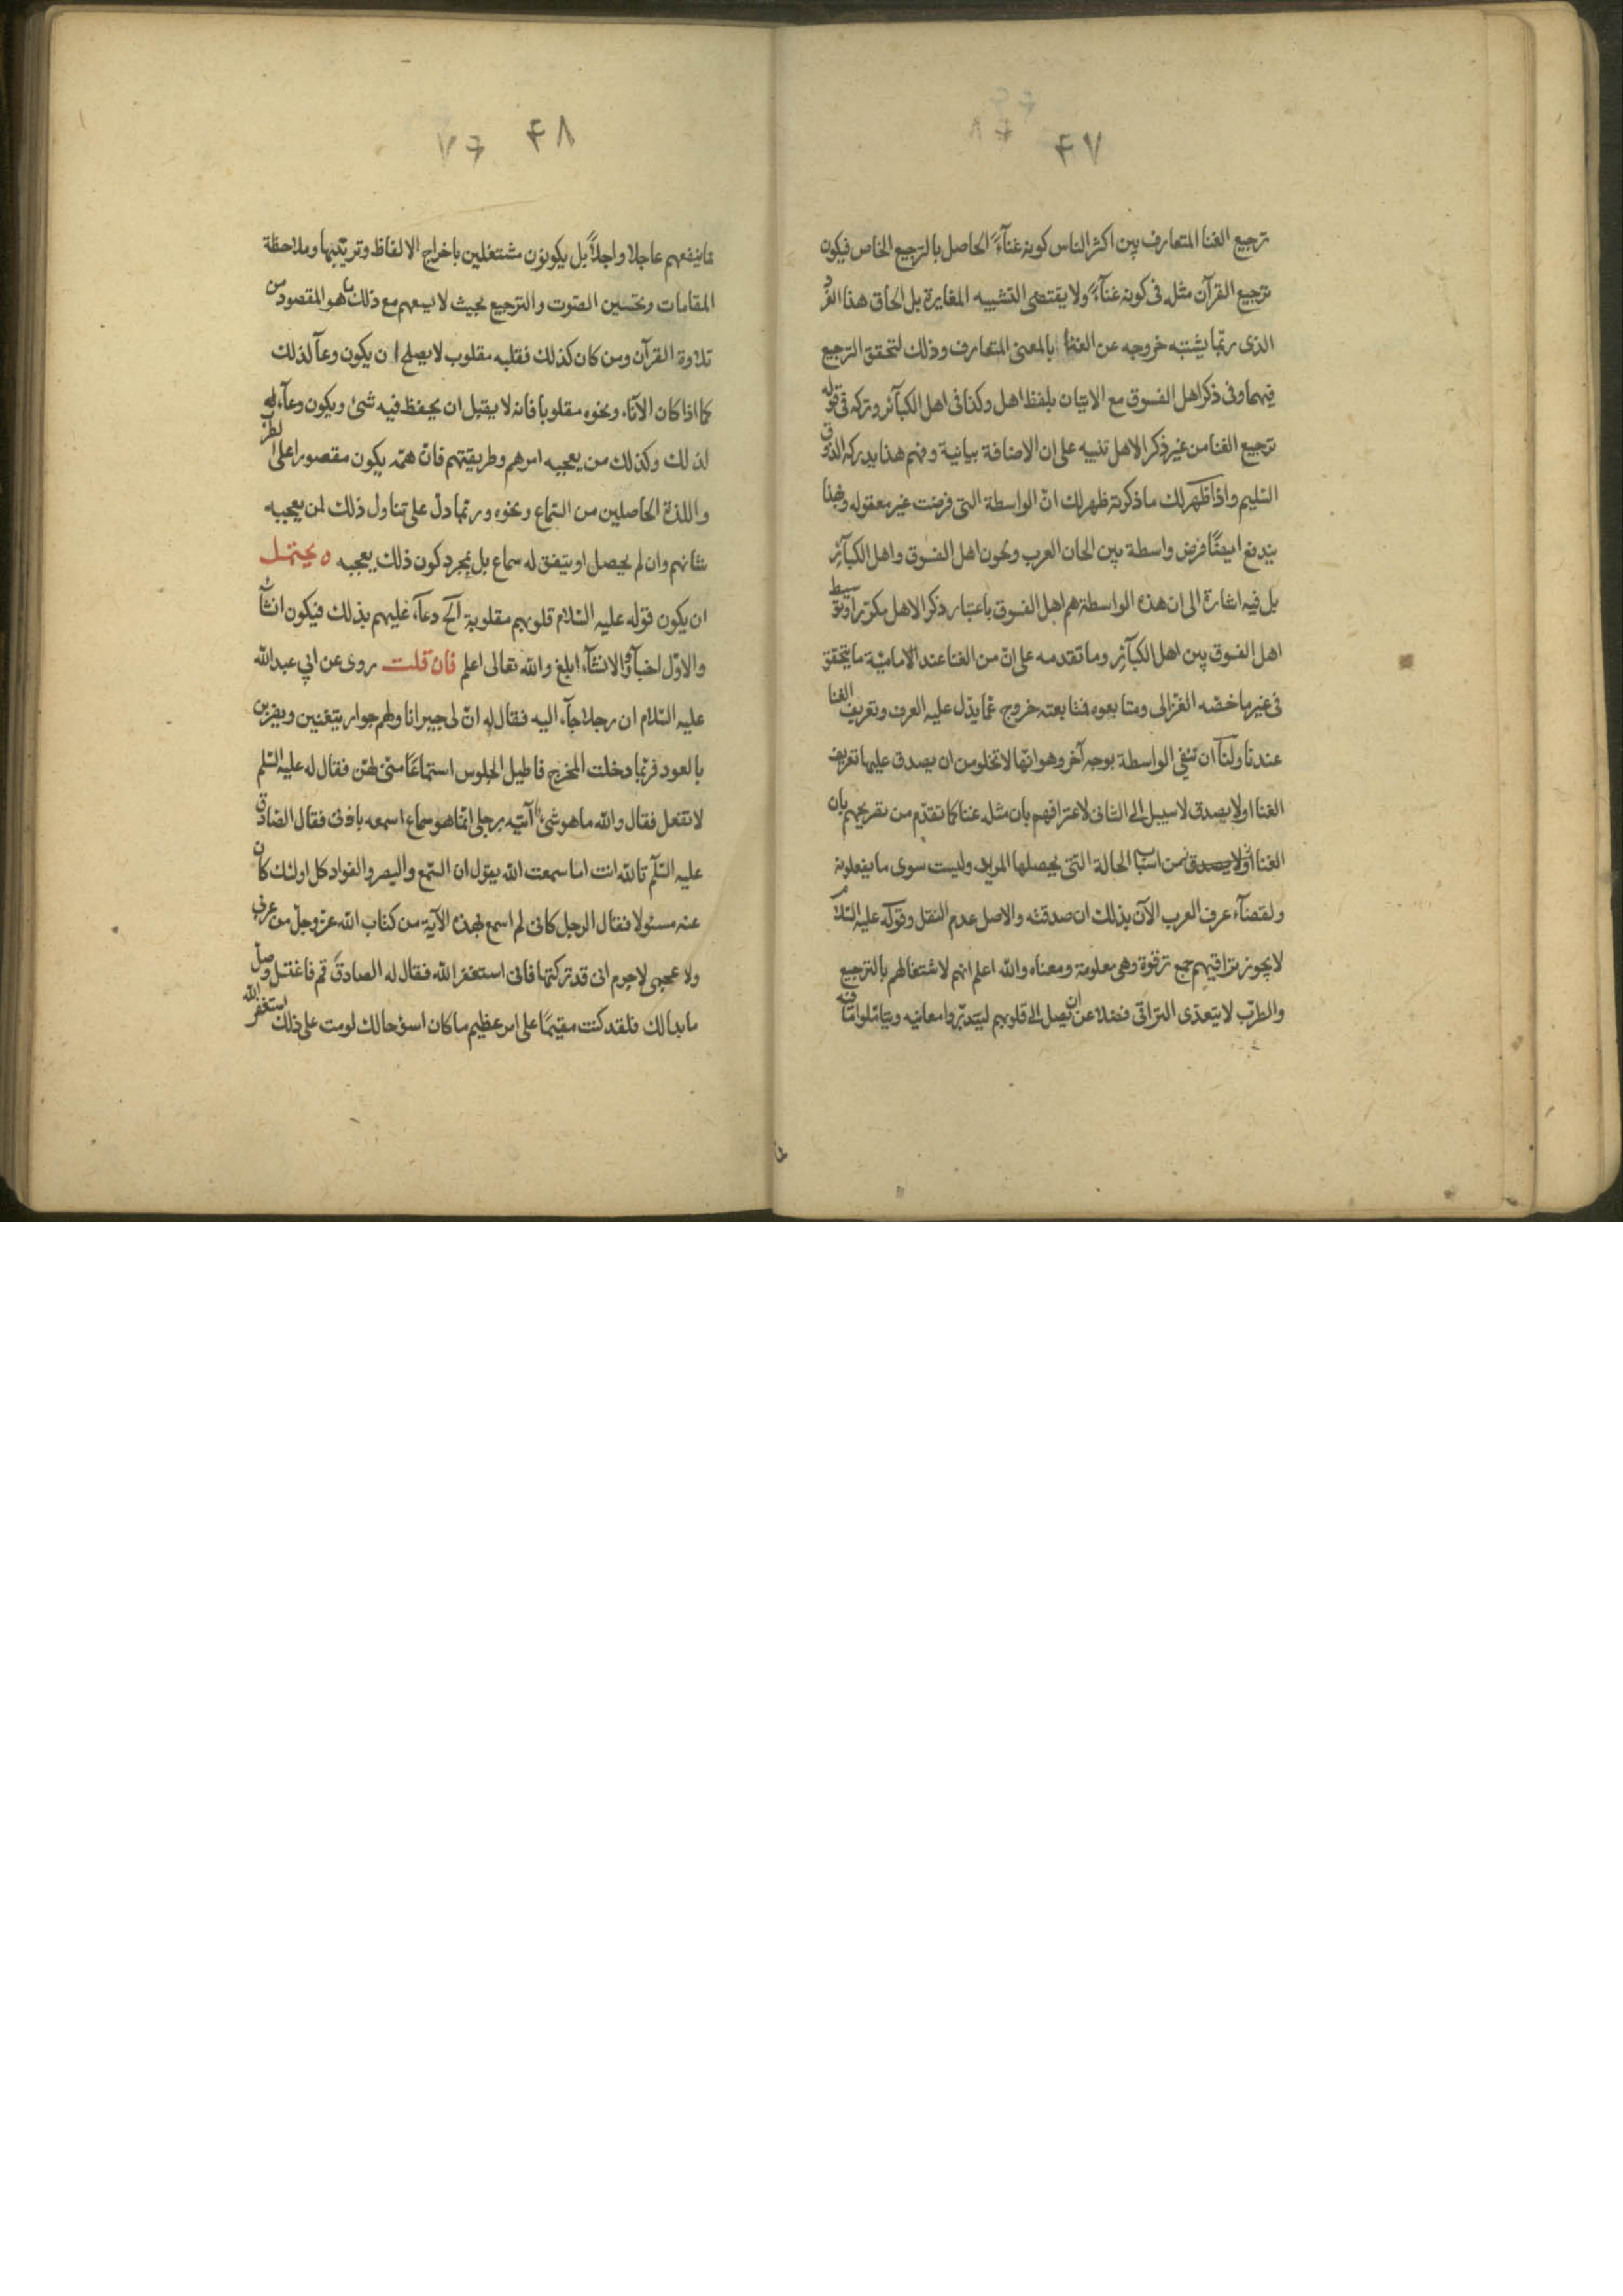 ۴۷
ترجيع الغنا المتعارف بين اكثر الناس كونه غنآءً الحاصل بالترجيع الخاص فيكون
ترجيع القرآن مثله فى كونه غنآءً ولا يقتضى التشبيه المغايرة بل الحاق هذا الفرد
الذى ربّما يشتبه خروجه عن الغنا بالمعنى المتعارف وذلك لتحقق الترجيع
فيهما وفى ذكر اهل الفسوق مع الاتيان بلفظ اهل وكذا فى اهل الكبآئر وتركه فى قوله
ترجيع الغنا من غير ذكر الاهل تنبيه على ان الاضافة بيانية وفهم هذا يدركه الذوق
السّليم واذا ظهر لك ما ذكرته ظهر لك انّ الواسطة التى فرضت غير معقوله وبهذا
يندفع ايضًا فرض واسطة بين الحان العرب ولحون اهل الفسوق واهل الكبآئر
بل فيه اشارة الى ان هذه الواسطة هم اهل الفسوق باعتبار ذكر الاهل مكرّرا وتوسيط
اهل الفسوق بين اهل الكبآئر وما تقدمه على انّ من الغنا عند الاماميّة ما يتحقق
فى غير ما خصّه الغزالى ومتابعوه فمتابعته خروج عمّا يدّل عليه العرف وتعريف الغنا
عندنا ولنآ ان ننفي الواسطة بوجه آخر وهو انّها لا تخلو من ان يصدق عليها تعريف
الغنا او لا يصدق لا سبيل الى الثانى لاعترافهم بان مثله غنا كما تقدّم من تصريحهم بان
الغنا من اسباب الحالة التى يحصلها المريد وليست سوى ما يفعلونه
ولقضآء عرف العرب الآن بذلك ان صدقته والاصل عدم النقل وقوله عليه السّلام
لا يجوز تراقيهم جمع ترقوة وهى معلومة ومعناه والله اعلم انهم لاشتغالهم بالترجيع
والطرب لا يتعدّى التراقى فضلا عن ان يصل الى قلوبهم ليتدبّروا معانيه ويتاملوا ما فيه
۴۸
ما ينفعهم عاجلا واجلاً بل يكونون مشتغلين باخراج الالفاظ وترتيبها وملاحظة
المقامات وتحسين الصّوت والترجيع بحيث لا يسعهم مع ذلك ما هو المقصود من
تلاوة القرآن ومن كان كذلك فقلبه مقلوب لا يصلح ان يكون وعآ لذلك
كما اذا كان الآنآء ونحوه مقلوبا فانه لا يقبل ان يحفظ فيه شئ ويكون وعآء له
لذلك وكذلك من يعجبه امرهم وطريقتهم فانّ همّه يكون مقصورا على الطرب
واللذة الحاصلين من السّماع ونحوه وربّما دلّ على تناول ذلك لمن يعجبه
شانهم وان لم يحصل او يتفق له سماع بل بمجرد كون ذلك يعجبه ٥ يحتمل
ان يكون قوله عليه السّلام قلوبهم مقلوبة آلخ دعآء عليهم بذلك فيكون انشآء
والاوّل اخبآر والانشآء ابلغ والله تعالى اعلم فان قلت روى عن ابي عبد الله
عليه السّلام ان رجلا جآء اليه فقال له انّ لى جيرانا ولهم جوار يتغنين ويضربن
بالعود فربّما دخلت المخرج فاطيل الجلوس استماعًا منّى لهنّ فقال له عليه السّلم
لا تفعل فقال والله ما هو شئ آتيه برجلى انّما هو سماع اسمعه باذنى فقال الصّادق
عليه السّلم تالله انت اما سمعت الله يقول ان السّمع والبصر والفواد كل اولئك كان
عنه مسئولا فقال الرجل كانى لم اسمع بهذه الآية من كتاب الله عزّ وجلّ من عربى
ولا عجمى لاجرم انى قد تركتها فانى استغفر الله فقال له الصادق قم فاغتسل وصلّ
ما بدا لك فلقد كنت مقيمًا على امر عظيم ما كان اسوءَ حالك لو مت على ذلك استغفر الله